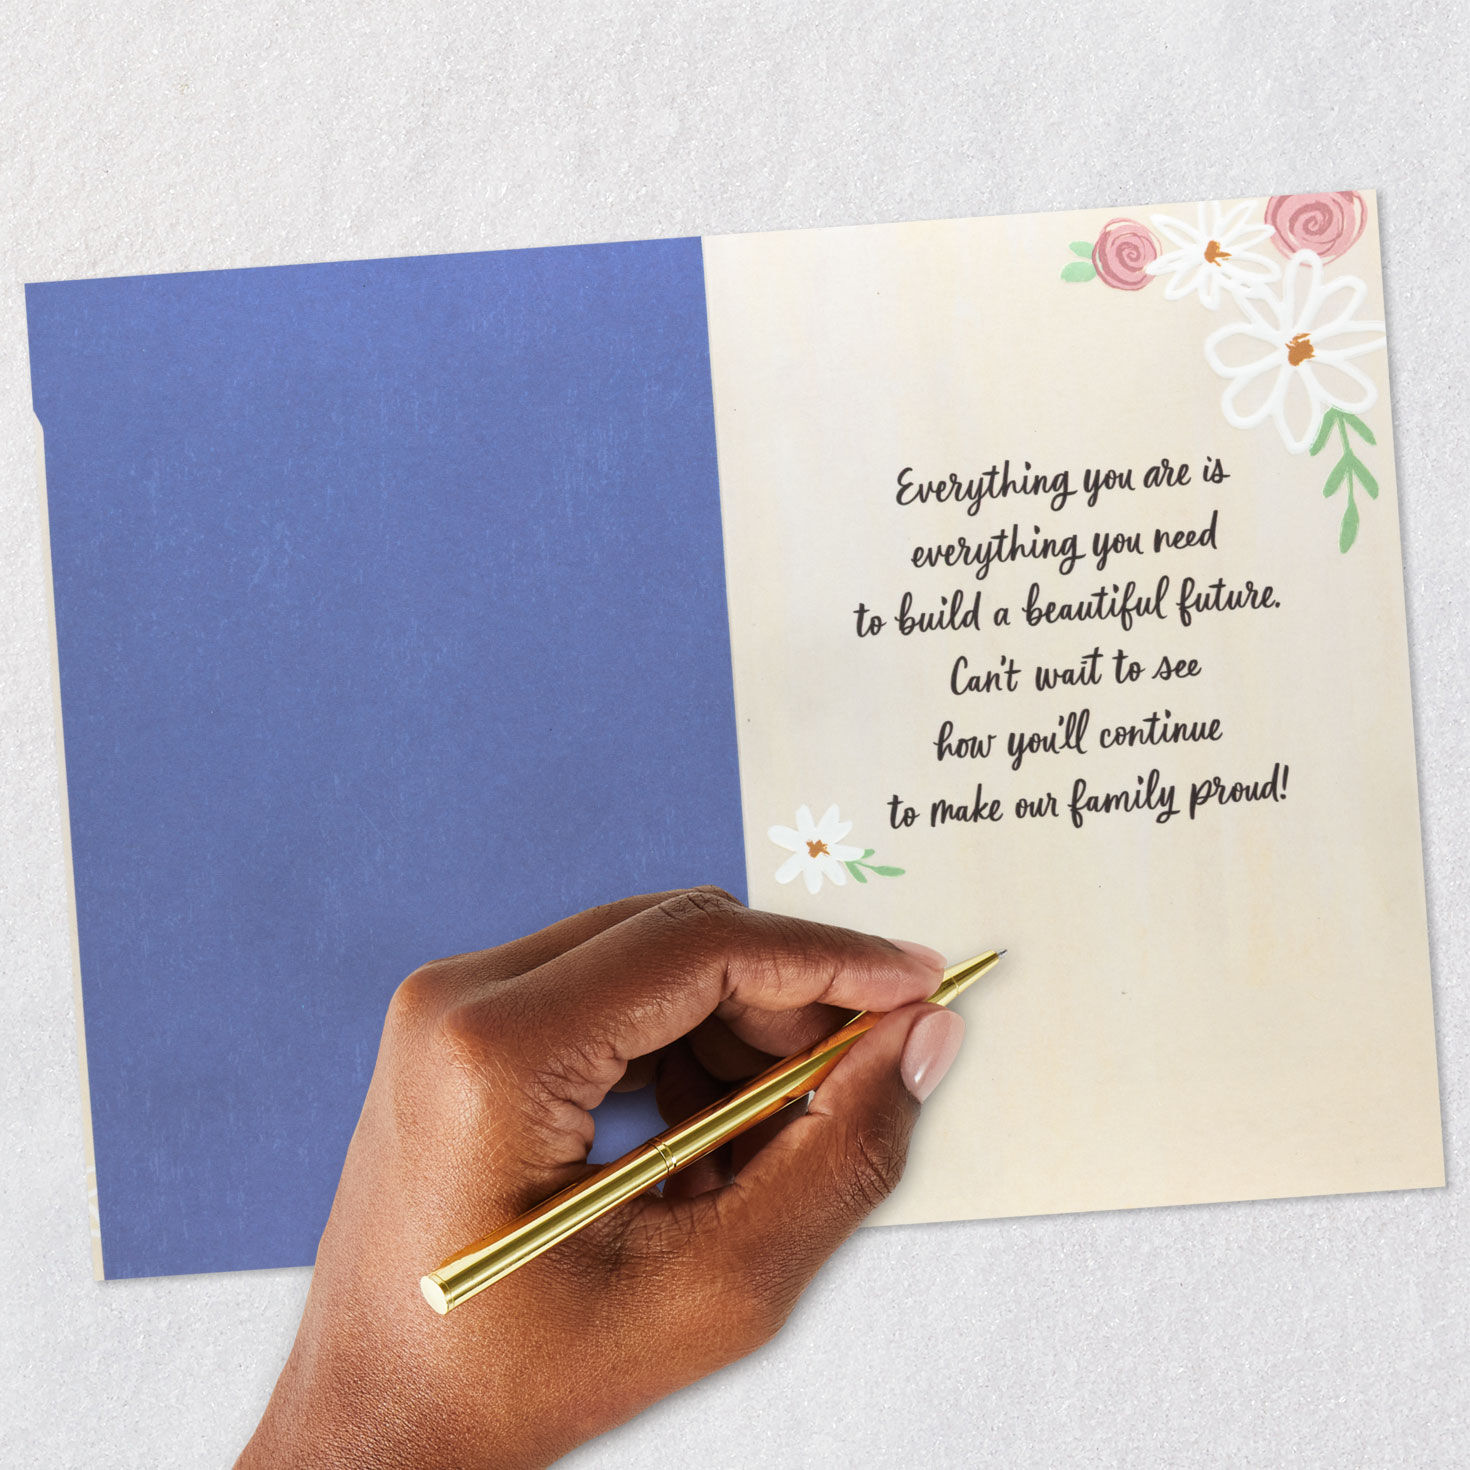 Everything you are is
everything you need
to build a beautiful future.
Can't wait to see
how you'll continue
to make our family proud!